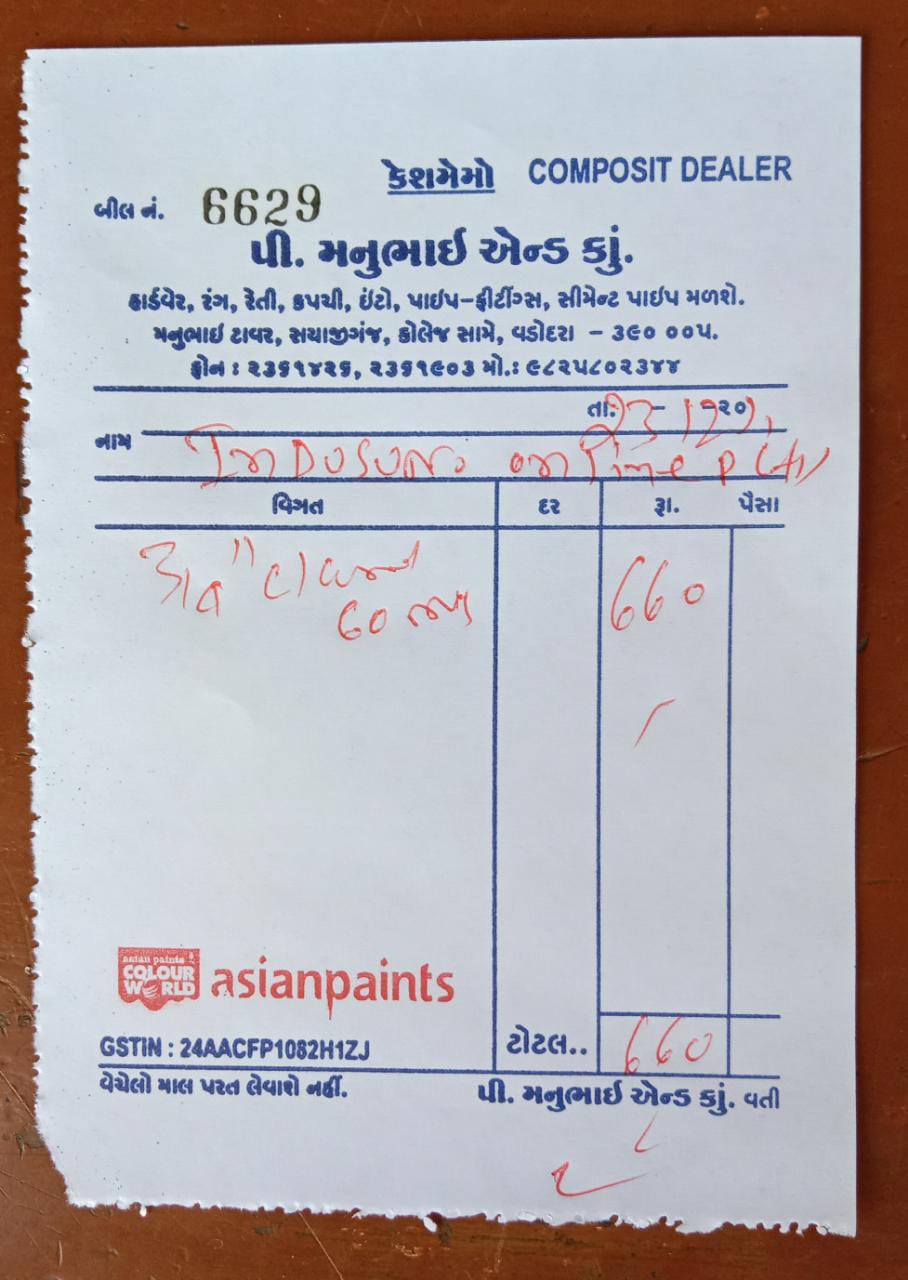 કેશમેમો COMPOSIT DEALER
બીલ નં. 6629
પી. મનુભાઈ એન્ડ કાું.
હાર્ડવેર, રંગ, રેતી, કપચી, ઈંટો, પાઈપ-ફીટીંગ્સ, સીમેન્ટ પાઈપ મળશે.
મનુભાઈ ટાવર, સયાજીગંજ, કોલેજ સામે, વડોદરા - ૩૯૦ ૦૦૫.
ફોન : ૨૩૬૧૪૨૬, ૨૩૬૧૯૦૩ મો.: ૯૮૨૫૮૦૨૩૪૪
તા. 23 - -૨૦
નામ InDUSUN on Time P
વિગત દર રૂા. પૈસા
660
60
asian paints
COLOUR
WORLD
asianpaints
GSTIN : 24AACFP1082H1ZJ ટોટલ.. 660
વેચેલો માલ પરત લેવાશે નહીં. પી. મનુભાઈ એન્ડ કાું. વતી